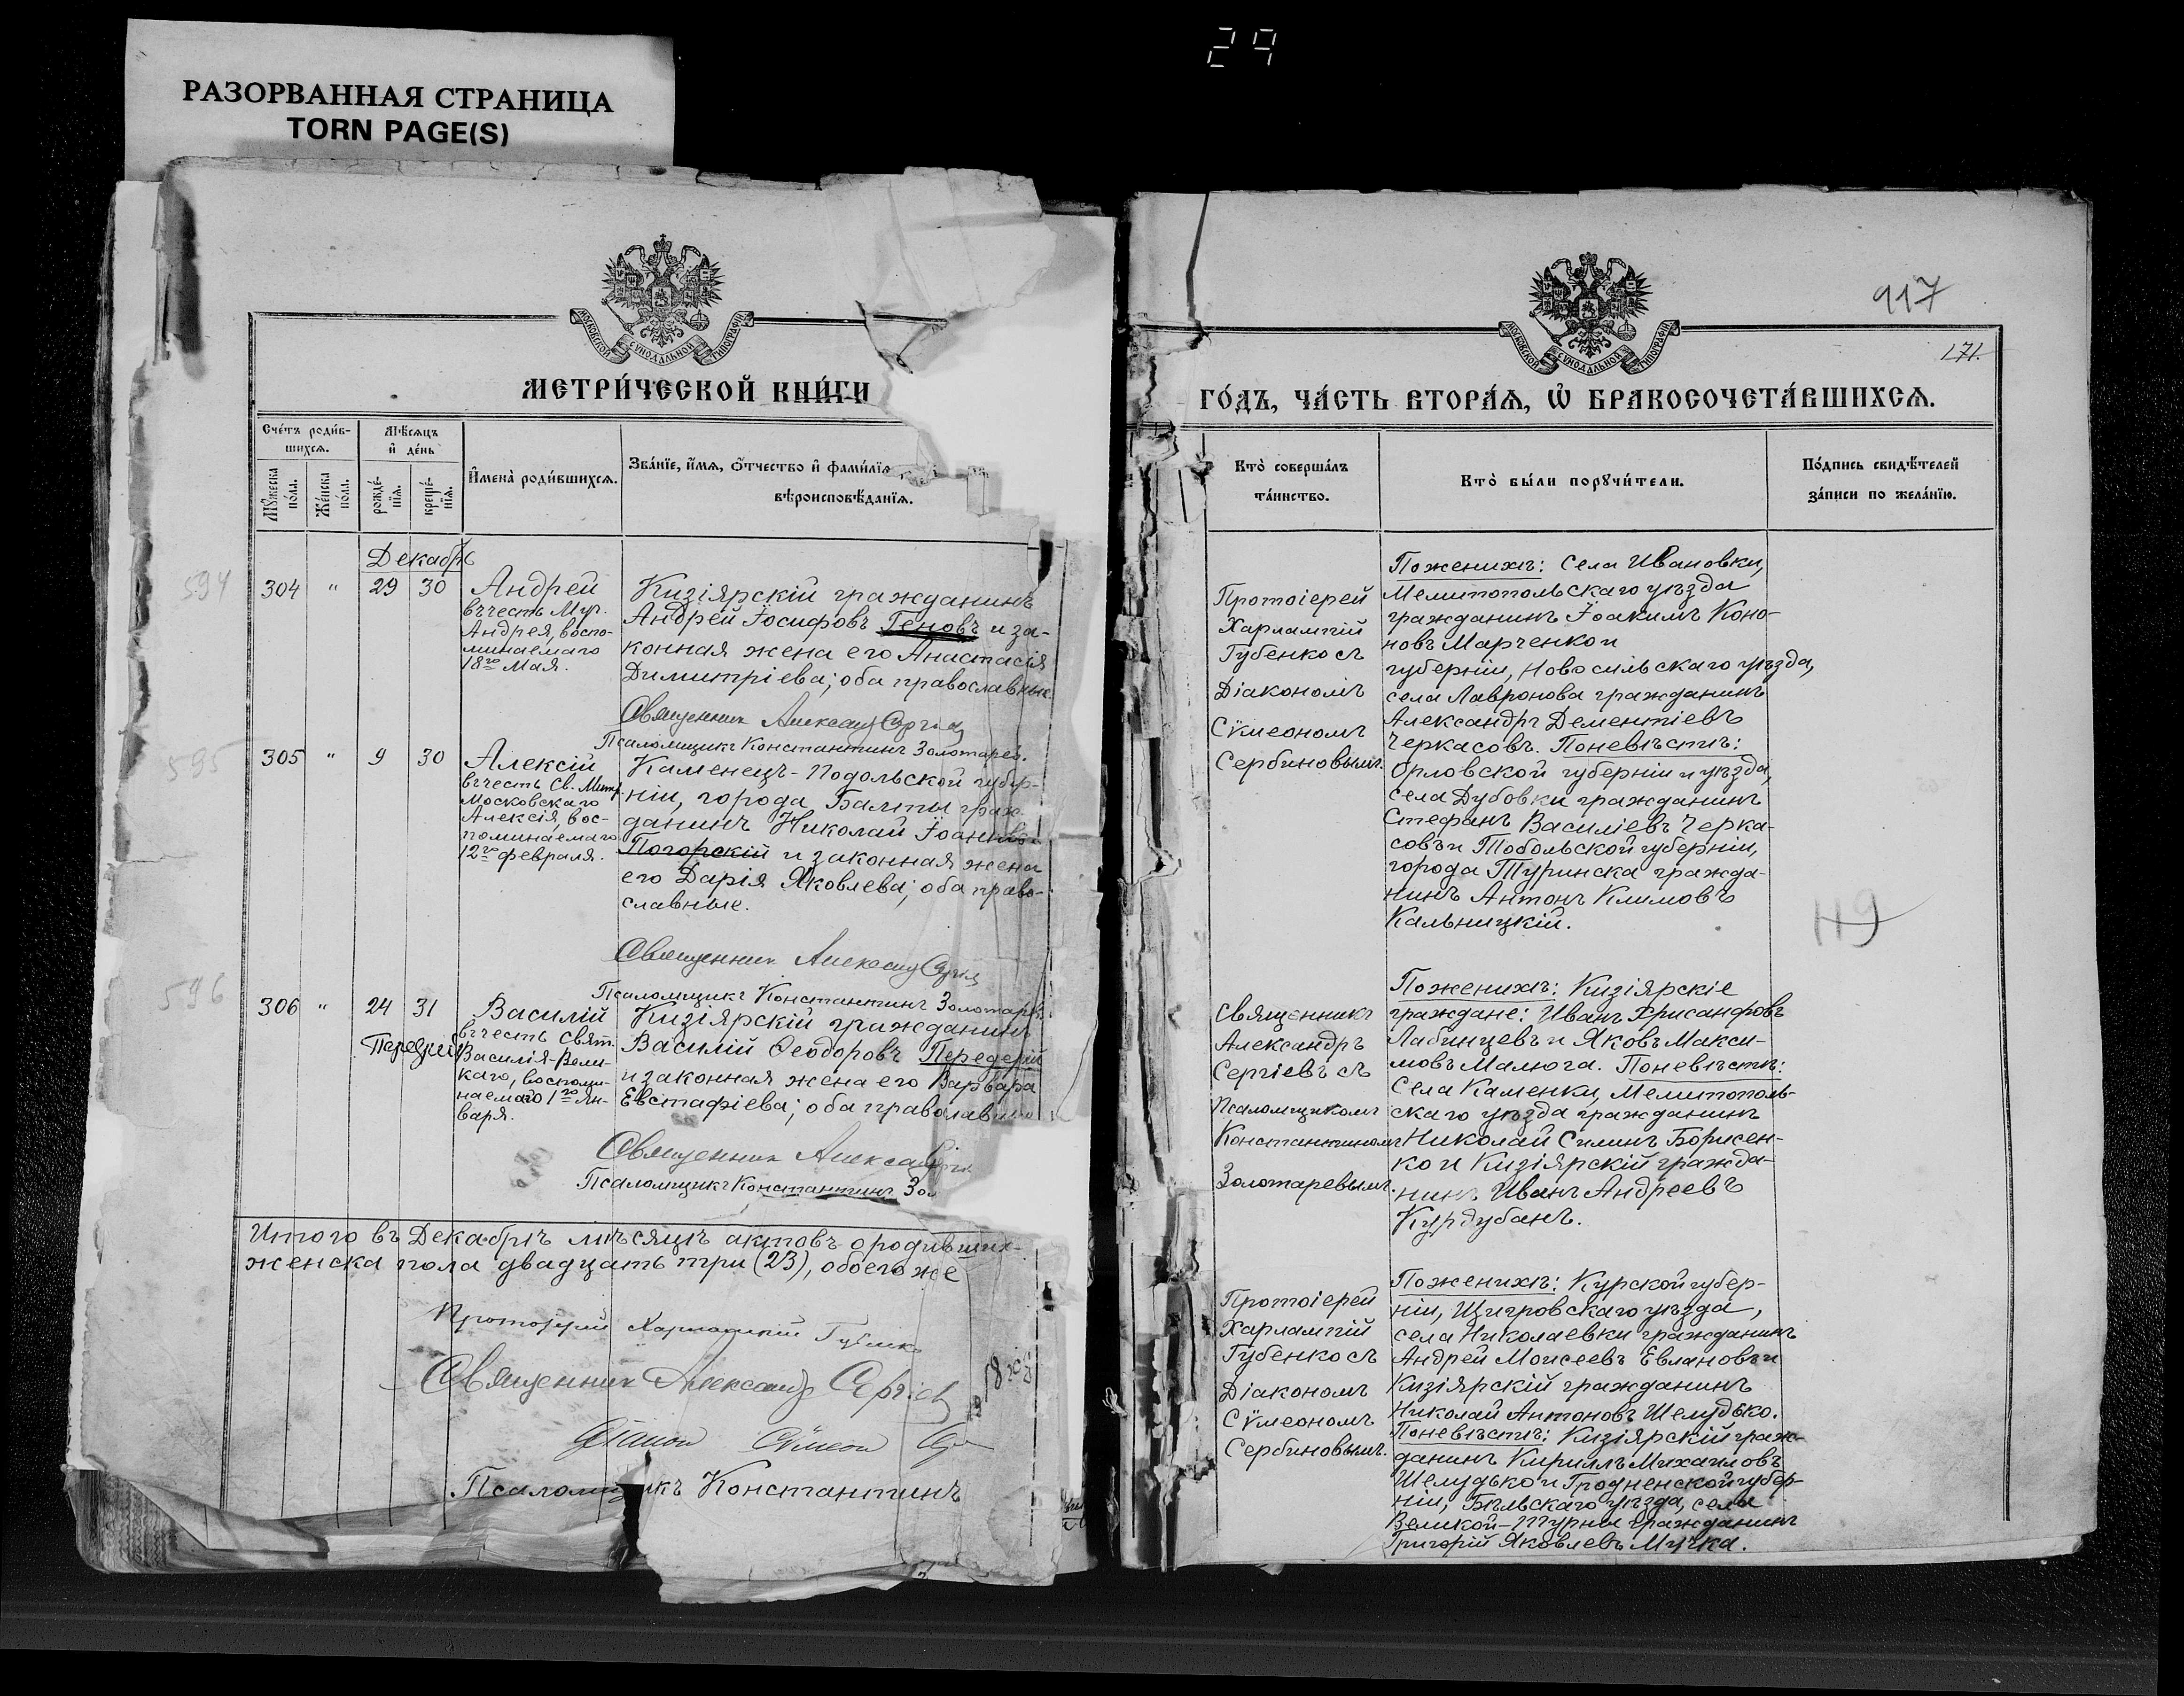 29
РАЗОРВАННАЯ СТРАНИЦА
TORN PAGE(S)
МОСКОВСКОЙ СУНОДАЛЬНОЙ ТИПОГРАФІИ
МЕТРИ́ЧЕСКОЙ КНИ́ГИ
Сче́тъ роди́в-
шихсѧ.
Мꙋ́жеска по́ла.
Же́нска по́ла.
Мѣ́сѧцъ
и҆ де́нь
рожде́-
нїѧ.
креще́-
нїѧ.
И҆мена̀ роди́вшихсѧ.
Зва́нїе, и҆́мѧ, ѻ҆́тчество и҆ фами́лїѧ
вѣроисповѣ́данїѧ.
Декабрь
594
304 " 29 30
Андрей
въ честь Муч.
Андрея, воспо-
минаемаго
18го Мая.
Кизіярскій гражданинъ
Андрей Іосифовъ Геновъ и за-
конная жена его Анастасія
Димитріева; оба православные
Священникъ Александръ Сергіев
Псаломщикъ Константинъ Золотарев.
595
305 " 9 30
Алексій
въ честь Св. Митр.
Московскаго
Алексія, вос-
поминаемаго
12го февраля.
Каменецъ-Подольской губер-
ніи, города Балты граж-
данинъ Николай Іоаннов
Погорскій и законная жена
его Дарія Яковлева; оба право-
славные.
Священникъ Александръ Сергіев
Псаломщикъ Константинъ Золотарев
596
306 " 24 31
Передрій
Василій
въ честь Свят.
Василія-Вели-
каго, воспоми-
наемаго 1го Ян-
варя.
Кизіярскій гражданинъ
Василій Ѳеодоровъ Передерій
и законная жена его Варвара
Евстафіева; оба православные
Священникъ Александръ
Псаломщикъ Константинъ Зол
Итого въ Декабрѣ мѣсяцѣ актовъ о родивших-
женска пола двадцать три (23), обоего же
Протоіерей Харлампій Губенко
Священникъ Александръ Сергіевъ
Діаконъ Сѵмеонъ
Псаломщикъ Константинъ
917
171.
МОСКОВСКОЙ СУНОДАЛЬНОЙ ТИПОГРАФІИ
ГО́ДЪ, ЧА́СТЬ ВТОРА́Ѧ, Ѡ҆ БРАКОСОЧЕТА́ВШИХСѦ.
Кто̀ соверша́лъ
та́инство.
Кто̀ бы́ли порꙋчи́тели.
По́дпись свидѣ́телей
за́писи по жела́нїю.
Протоіерей
Харлампій
Губенко съ
Діакономъ
Сѵмеономъ
Сербиновымъ.
По женихѣ: Села Ивановки,
Мелитопольскаго уѣзда
гражданинъ Іоакимъ Коно-
новъ Марченко и
губерніи, Новосильскаго уѣзда,
села Лавронова гражданинъ
Александръ Дементіевъ
Черкасовъ. По невѣстѣ:
Орловской губерніи и уѣзда,
села Дубовки гражданинъ
Стефанъ Василіевъ Черка-
совъ и Тобольской губерніи,
города Туринска гражда-
нинъ Антонъ Климовъ
Кальницкій.
119
Священникъ
Александръ
Сергіевъ съ
Псаломщикомъ
Константиномъ
Золотаревымъ.
По женихѣ: Кизіярскіе
граждане: Иванъ Хрисанфовъ
Лабинцевъ и Яковъ Макси-
мовъ Малюга. По невѣстѣ:
Села Каменки, Мелитополь-
скаго уѣзда гражданинъ
Николай Силинъ Борисен-
ко и Кизіярскій гражда-
нинъ Иванъ Андреевъ
Курдубанъ.
Протоіерей
Харлампій
Губенко съ
Діакономъ
Сѵмеономъ
Сербиновымъ.
По женихѣ: Курской губер-
ніи, Щигровскаго уѣзда,
села Николаевки гражданинъ
Андрей Моисеевъ Евлановъ и
Кизіярскій гражданинъ
Николай Антоновъ Шелудько.
По невѣстѣ: Кизіярскій граж-
данинъ Кириллъ Михаиловъ
Шелудько и Гродненской губер-
ніи, Бѣльскаго уѣзда, села
Великой-Турны гражданинъ
Григорій Яковлевъ Мучка.